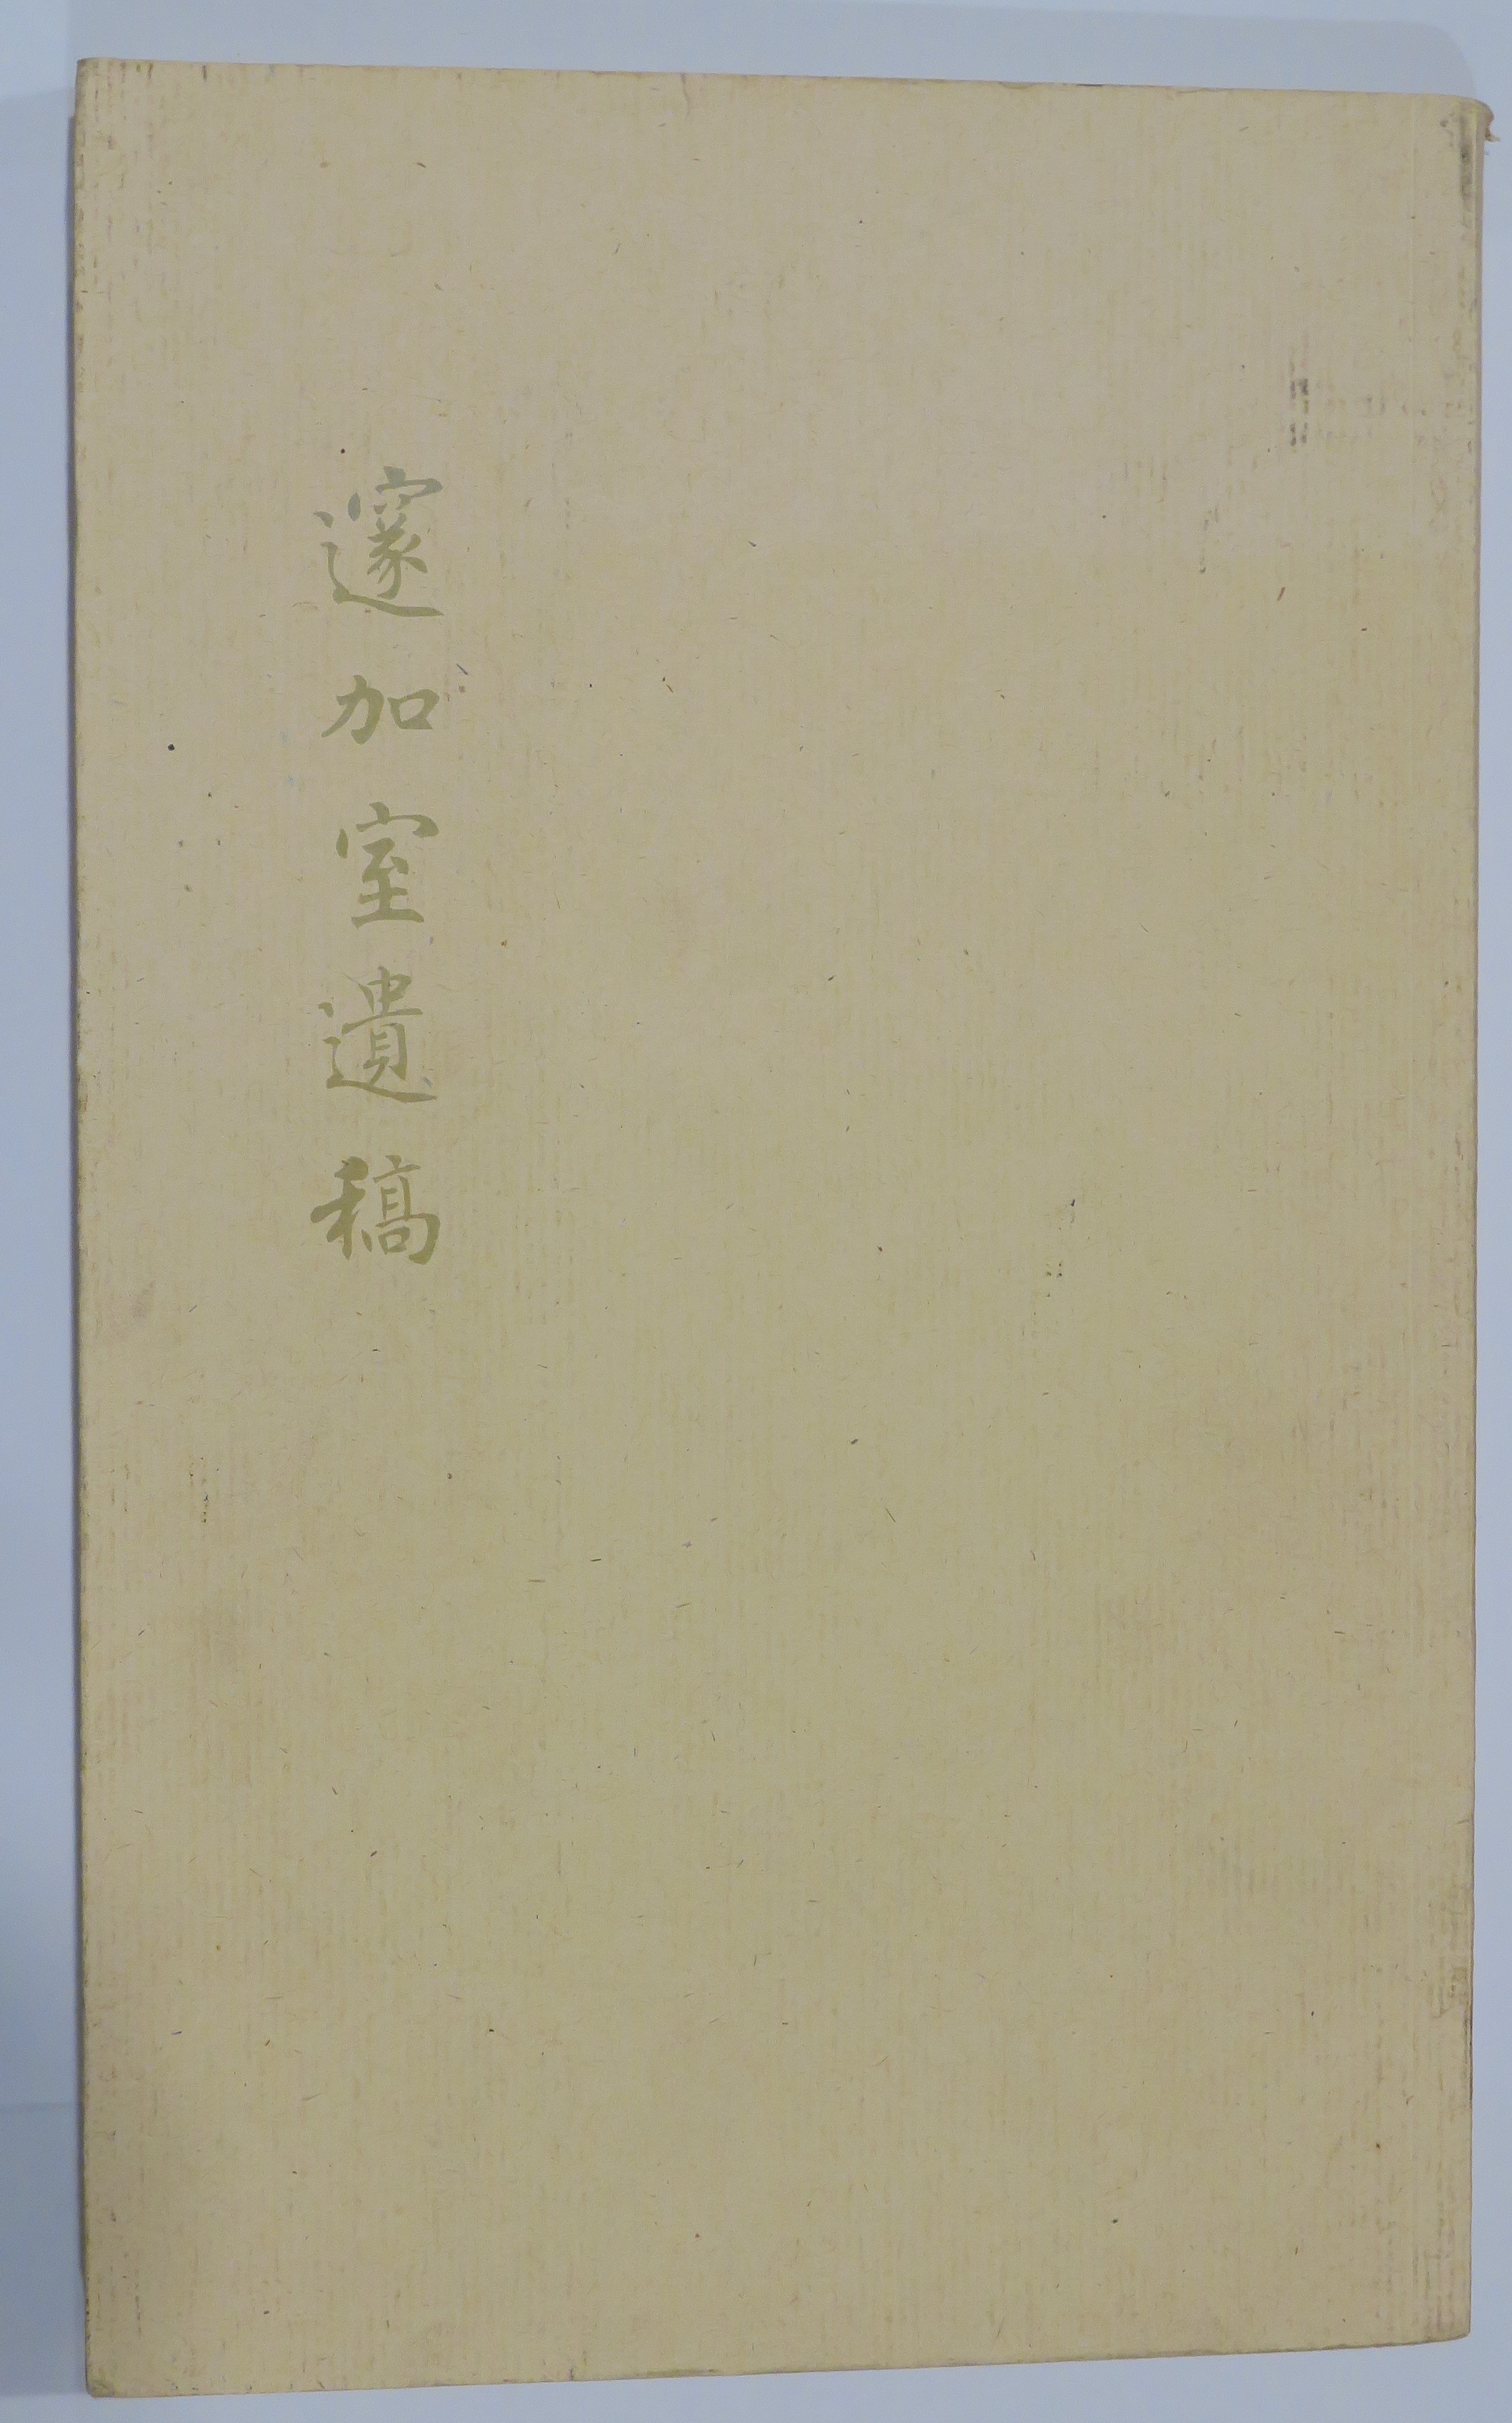 邃加室遺稿